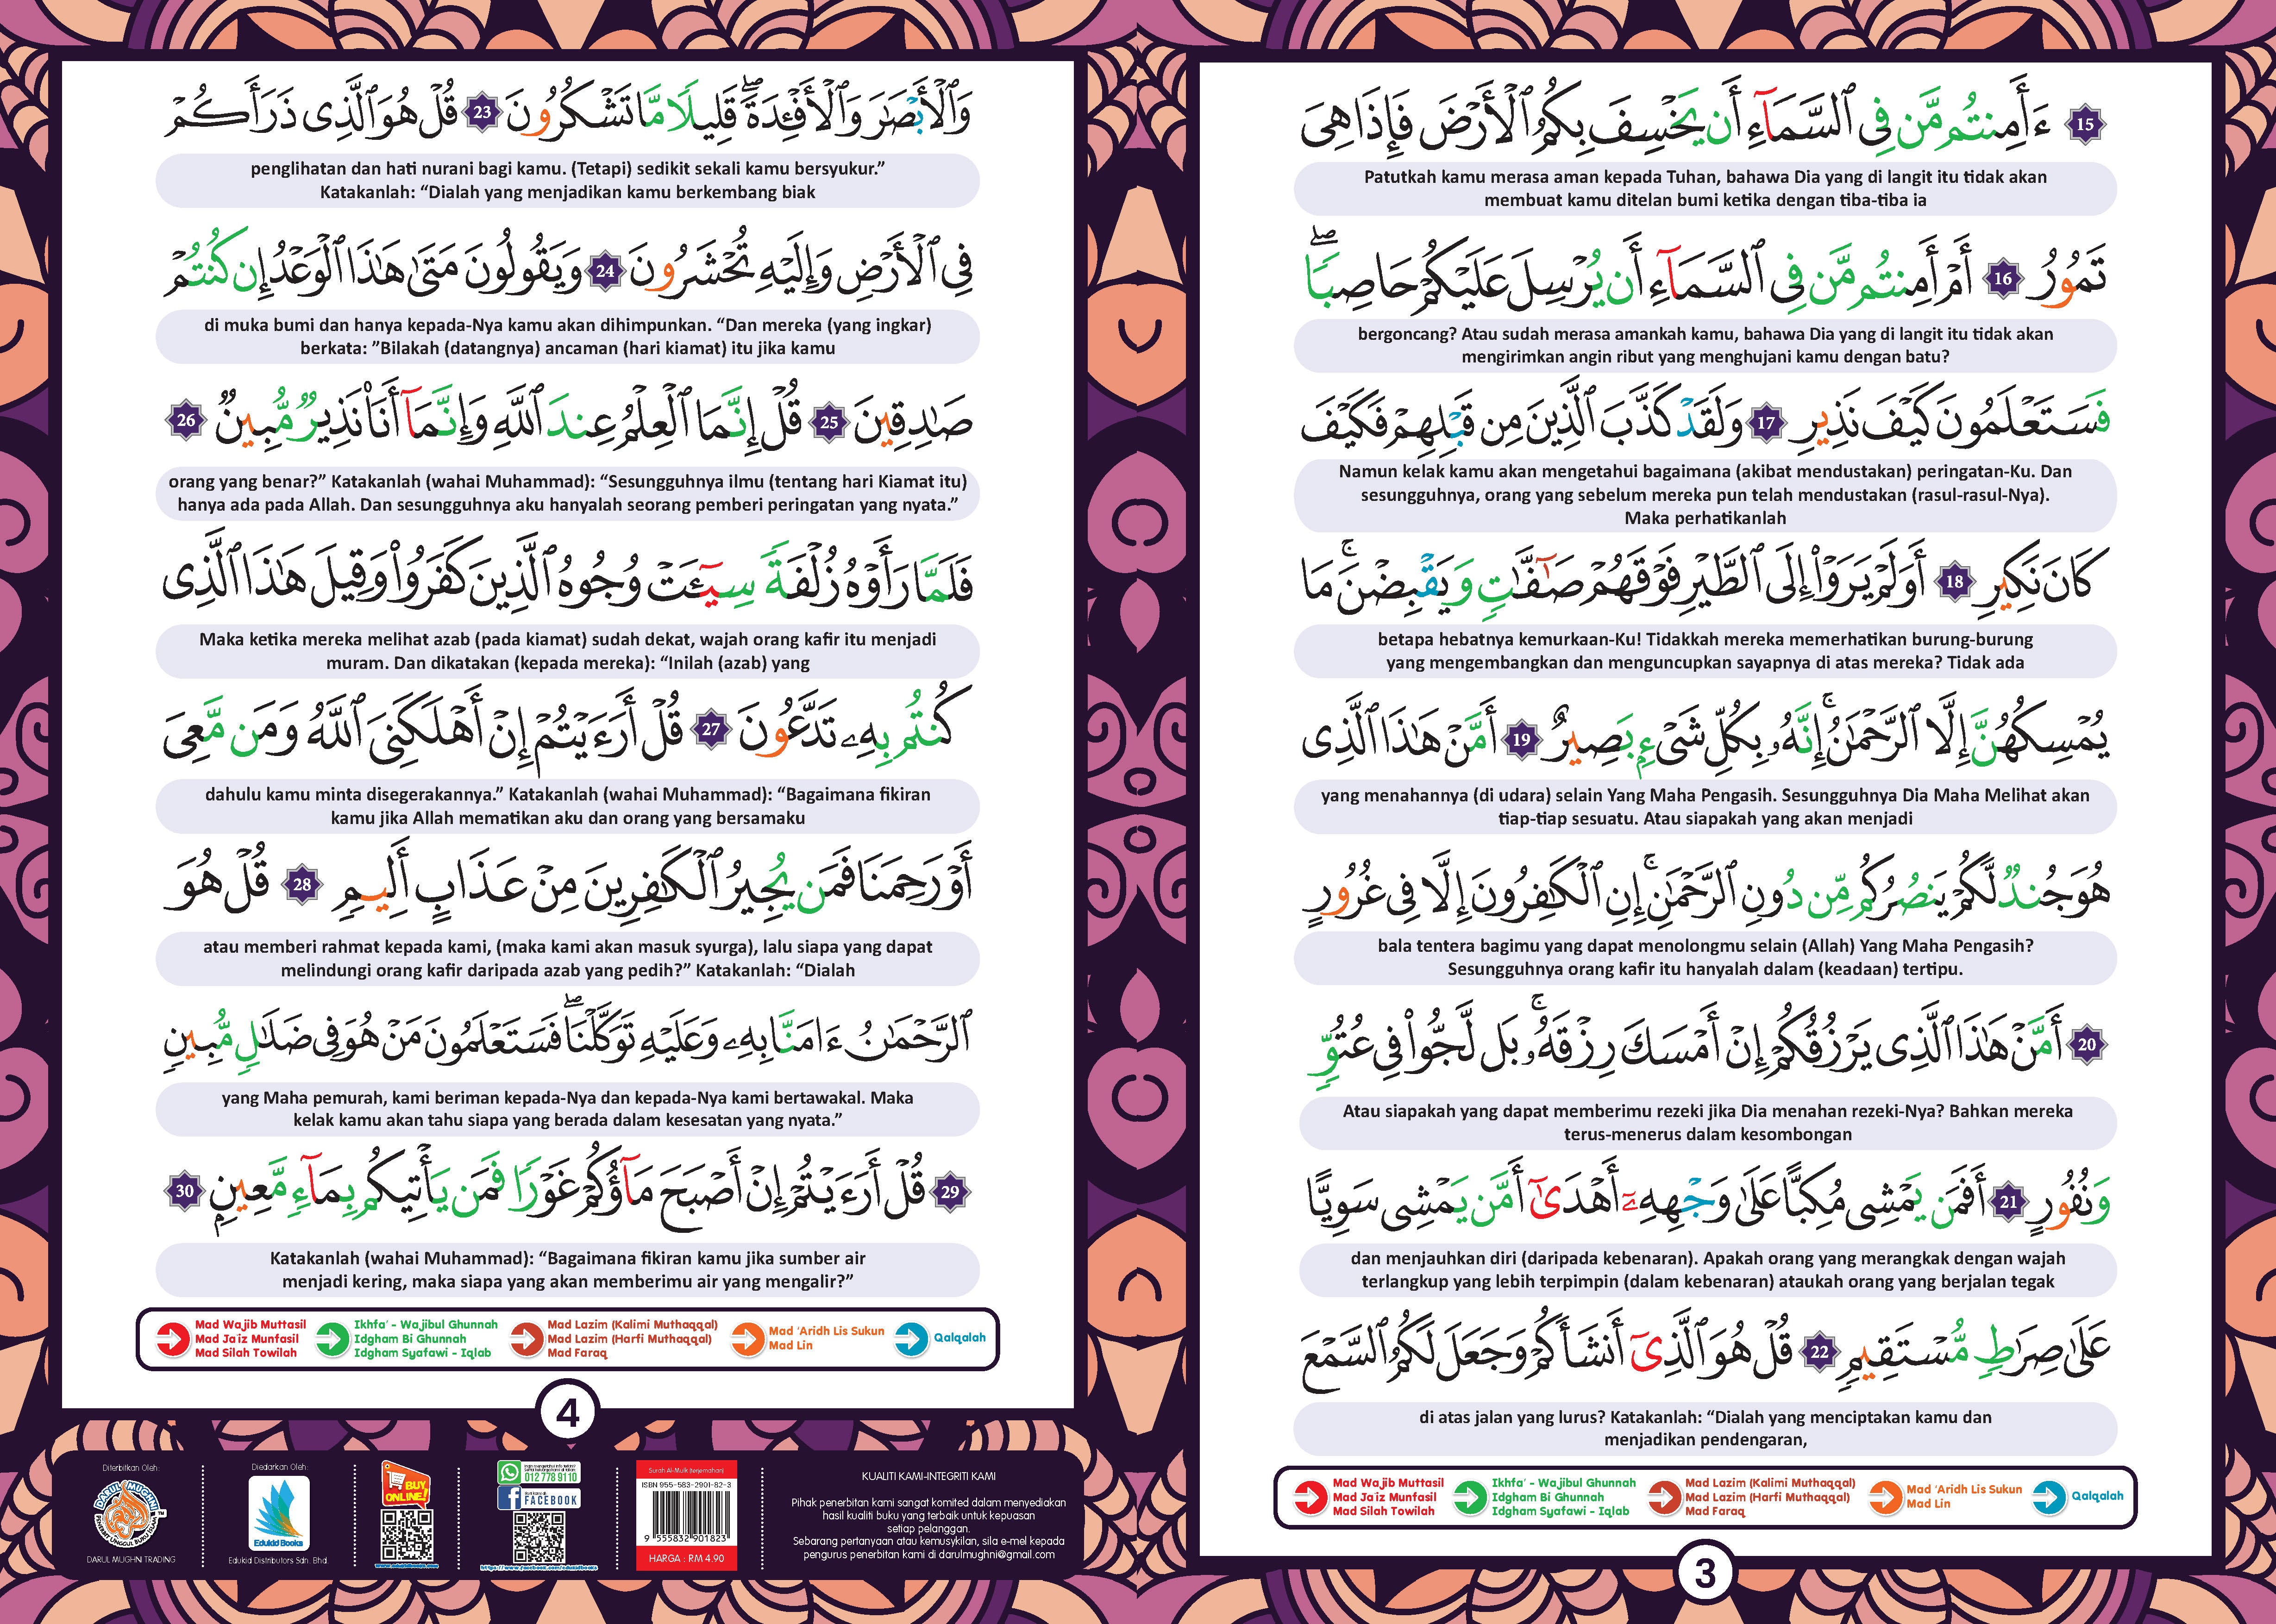 15 ءَأَمِنتُم مَّن فِى ٱلسَّمَآءِ أَن يَخْسِفَ بِكُمُ ٱلْأَرْضَ فَإِذَا هِىَ
Patutkah kamu merasa aman kepada Tuhan, bahawa Dia yang di langit itu tidak akan
membuat kamu ditelan bumi ketika dengan tiba-tiba ia
تَمُورُ 16 أَمْ أَمِنتُم مَّن فِى ٱلسَّمَآءِ أَن يُرْسِلَ عَلَيْكُمْ حَاصِبًا ۖ
bergoncang? Atau sudah merasa amankah kamu, bahawa Dia yang di langit itu tidak akan
mengirimkan angin ribut yang menghujani kamu dengan batu?
فَسَتَعْلَمُونَ كَيْفَ نَذِيرِ 17 وَلَقَدْ كَذَّبَ ٱلَّذِينَ مِن قَبْلِهِمْ فَكَيْفَ
Namun kelak kamu akan mengetahui bagaimana (akibat mendustakan) peringatan-Ku. Dan
sesungguhnya, orang yang sebelum mereka pun telah mendustakan (rasul-rasul-Nya).
Maka perhatikanlah
كَانَ نَكِيرِ 18 أَوَلَمْ يَرَوْا۟ إِلَى ٱلطَّيْرِ فَوْقَهُمْ صَـٰٓفَّـٰتٍ وَيَقْبِضْنَ ۚ مَا
betapa hebatnya kemurkaan-Ku! Tidakkah mereka memerhatikan burung-burung
yang mengembangkan dan menguncupkan sayapnya di atas mereka? Tidak ada
يُمْسِكُهُنَّ إِلَّا ٱلرَّحْمَـٰنُ ۚ إِنَّهُۥ بِكُلِّ شَىْءٍۭ بَصِيرٌ 19 أَمَّنْ هَـٰذَا ٱلَّذِى
yang menahannya (di udara) selain Yang Maha Pengasih. Sesungguhnya Dia Maha Melihat akan
tiap-tiap sesuatu. Atau siapakah yang akan menjadi
هُوَ جُندٌ لَّكُمْ يَنصُرُكُم مِّن دُونِ ٱلرَّحْمَـٰنِ ۚ إِنِ ٱلْكَـٰفِرُونَ إِلَّا فِى غُرُورٍ
bala tentera bagimu yang dapat menolongmu selain (Allah) Yang Maha Pengasih?
Sesungguhnya orang kafir itu hanyalah dalam (keadaan) tertipu.
20 أَمَّنْ هَـٰذَا ٱلَّذِى يَرْزُقُكُمْ إِنْ أَمْسَكَ رِزْقَهُۥ ۚ بَل لَّجُّوا۟ فِى عُتُوٍّ
Atau siapakah yang dapat memberimu rezeki jika Dia menahan rezeki-Nya? Bahkan mereka
terus-menerus dalam kesombongan
وَنُفُورٍ 21 أَفَمَن يَمْشِى مُكِبًّا عَلَىٰ وَجْهِهِۦٓ أَهْدَىٰٓ أَمَّن يَمْشِى سَوِيًّا
dan menjauhkan diri (daripada kebenaran). Apakah orang yang merangkak dengan wajah
terlangkup yang lebih terpimpin (dalam kebenaran) ataukah orang yang berjalan tegak
عَلَىٰ صِرَٰطٍ مُّسْتَقِيمٍ 22 قُلْ هُوَ ٱلَّذِىٓ أَنشَأَكُمْ وَجَعَلَ لَكُمُ ٱلسَّمْعَ
di atas jalan yang lurus? Katakanlah: “Dialah yang menciptakan kamu dan
menjadikan pendengaran,
Mad Wajib Muttasil
Mad Ja'iz Munfasil
Mad Silah Towilah
Ikhfa' - Wajibul Ghunnah
Idgham Bi Ghunnah
Idgham Syafawi - Iqlab
Mad Lazim (Kalimi Muthaqqal)
Mad Lazim (Harfi Muthaqqal)
Mad Faraq
Mad 'Aridh Lis Sukun
Mad Lin
Qalqalah
3
وَٱلْأَبْصَـٰرَ وَٱلْأَفْـِٔدَةَ ۖ قَلِيلًا مَّا تَشْكُرُونَ 23 قُلْ هُوَ ٱلَّذِى ذَرَأَكُمْ
penglihatan dan hati nurani bagi kamu. (Tetapi) sedikit sekali kamu bersyukur.”
Katakanlah: “Dialah yang menjadikan kamu berkembang biak
فِى ٱلْأَرْضِ وَإِلَيْهِ تُحْشَرُونَ 24 وَيَقُولُونَ مَتَىٰ هَـٰذَا ٱلْوَعْدُ إِن كُنتُمْ
di muka bumi dan hanya kepada-Nya kamu akan dihimpunkan. “Dan mereka (yang ingkar)
berkata: ”Bilakah (datangnya) ancaman (hari kiamat) itu jika kamu
صَـٰدِقِينَ 25 قُلْ إِنَّمَا ٱلْعِلْمُ عِندَ ٱللَّهِ وَإِنَّمَآ أَنَا۠ نَذِيرٌ مُّبِينٌ 26
orang yang benar?” Katakanlah (wahai Muhammad): “Sesungguhnya ilmu (tentang hari Kiamat itu)
hanya ada pada Allah. Dan sesungguhnya aku hanyalah seorang pemberi peringatan yang nyata.”
فَلَمَّا رَأَوْهُ زُلْفَةً سِيٓـَٔتْ وُجُوهُ ٱلَّذِينَ كَفَرُوا۟ وَقِيلَ هَـٰذَا ٱلَّذِى
Maka ketika mereka melihat azab (pada kiamat) sudah dekat, wajah orang kafir itu menjadi
muram. Dan dikatakan (kepada mereka): “Inilah (azab) yang
كُنتُم بِهِۦ تَدَّعُونَ 27 قُلْ أَرَءَيْتُمْ إِنْ أَهْلَكَنِىَ ٱللَّهُ وَمَن مَّعِىَ
dahulu kamu minta disegerakannya.” Katakanlah (wahai Muhammad): “Bagaimana fikiran
kamu jika Allah mematikan aku dan orang yang bersamaku
أَوْ رَحِمَنَا فَمَن يُجِيرُ ٱلْكَـٰفِرِينَ مِنْ عَذَابٍ أَلِيمٍ 28 قُلْ هُوَ
atau memberi rahmat kepada kami, (maka kami akan masuk syurga), lalu siapa yang dapat
melindungi orang kafir daripada azab yang pedih?” Katakanlah: “Dialah
ٱلرَّحْمَـٰنُ ءَامَنَّا بِهِۦ وَعَلَيْهِ تَوَكَّلْنَا ۖ فَسَتَعْلَمُونَ مَنْ هُوَ فِى ضَلَـٰلٍ مُّبِينٍ
yang Maha pemurah, kami beriman kepada-Nya dan kepada-Nya kami bertawakal. Maka
kelak kamu akan tahu siapa yang berada dalam kesesatan yang nyata.”
29 قُلْ أَرَءَيْتُمْ إِنْ أَصْبَحَ مَآؤُكُمْ غَوْرًا فَمَن يَأْتِيكُم بِمَآءٍ مَّعِينٍۭ 30
Katakanlah (wahai Muhammad): “Bagaimana fikiran kamu jika sumber air
menjadi kering, maka siapa yang akan memberimu air yang mengalir?”
Mad Wajib Muttasil
Mad Ja'iz Munfasil
Mad Silah Towilah
Ikhfa' - Wajibul Ghunnah
Idgham Bi Ghunnah
Idgham Syafawi - Iqlab
Mad Lazim (Kalimi Muthaqqal)
Mad Lazim (Harfi Muthaqqal)
Mad Faraq
Mad 'Aridh Lis Sukun
Mad Lin
Qalqalah
4
Diterbitkan Oleh:
DARUL MUGHNI
DARUL MUGHNI TRADING
Diedarkan Oleh:
Edukid Books
Edukid Distributors Sdn. Bhd.
BUY
ONLINE!
012 778 9110
FACEBOOK
Surah Al-Mulk (terjemahan)
ISBN 955-583-2901-82-3
9 555832 901823
HARGA : RM 4.90
KUALITI KAMI-INTEGRITI KAMI
Pihak penerbitan kami sangat komited dalam menyediakan
hasil kualiti buku yang terbaik untuk kepuasan
setiap pelanggan.
Sebarang pertanyaan atau kemusykilan, sila e-mel kepada
pengurus penerbitan kami di darulmughni@gmail.com